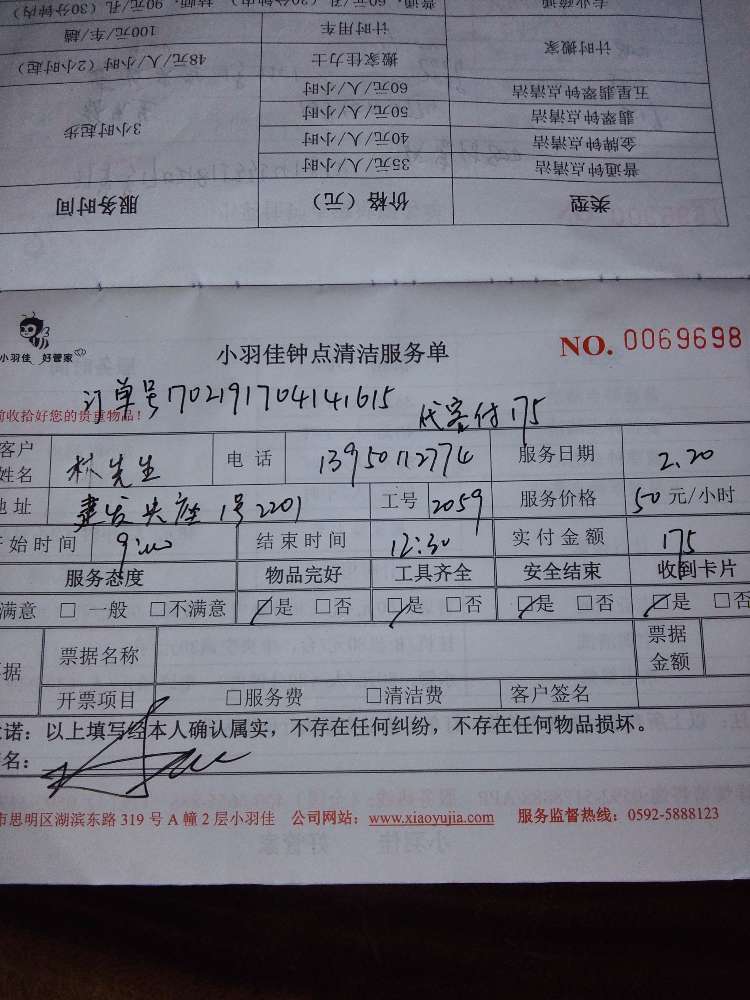 类型 价格（元） 服务时间
普通钟点清洁 35元/人/小时
金牌钟点清洁 40元/人/小时
翡翠钟点清洁 50元/人/小时 3小时起步
五星翡翠钟点清洁 60元/人/小时
计时搬家 搬家佳力士 48元/人/小时（2小时起）
计时用车 100元/车/趟
小羽佳 好管家
小羽佳钟点清洁服务单
NO. 0069698
订单号1702191704141615
代客付175
前收拾好您的贵重物品！
客户姓名 林先生 电话 13950112774 服务日期 2.20
地址 建发央座1号2201 工号 2059 服务价格 50元/小时
开始时间 9:00 结束时间 12:30 实付金额 175
服务态度 物品完好 工具齐全 安全结束 收到卡片
满意 □一般 □不满意 ☑是 □否 ☑是 □否 ☑是 □否 ☑是 □否
据 票据名称 票据金额
开票项目 □服务费 □清洁费 客户签名
诺：以上填写经本人确认属实，不存在任何纠纷，不存在任何物品损坏。
名：
市思明区湖滨东路319号A幢2层小羽佳 公司网站：www.xiaoyujia.com 服务监督热线：0592-5888123